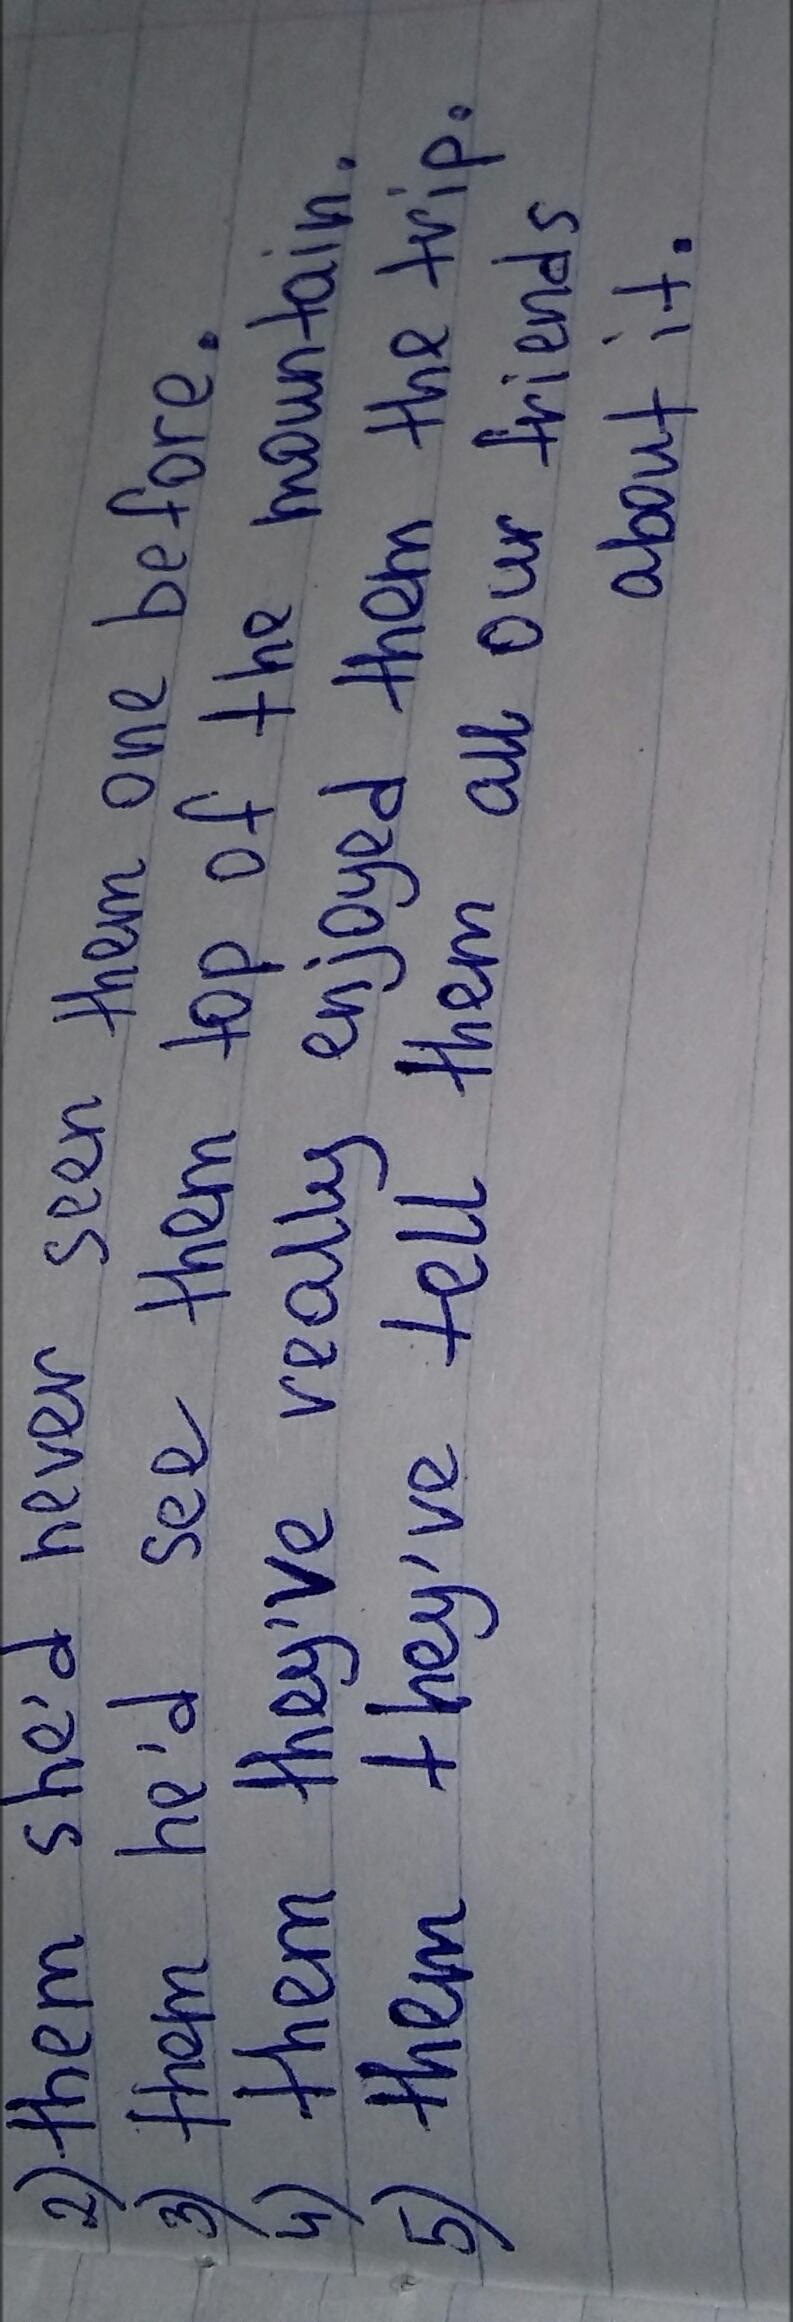 2) them she'd never seen them one before.
3) them he'd see them top of the mountain.
4) them they've really enjoyed them the trip.
5) them they've tell them all our friends
about it.